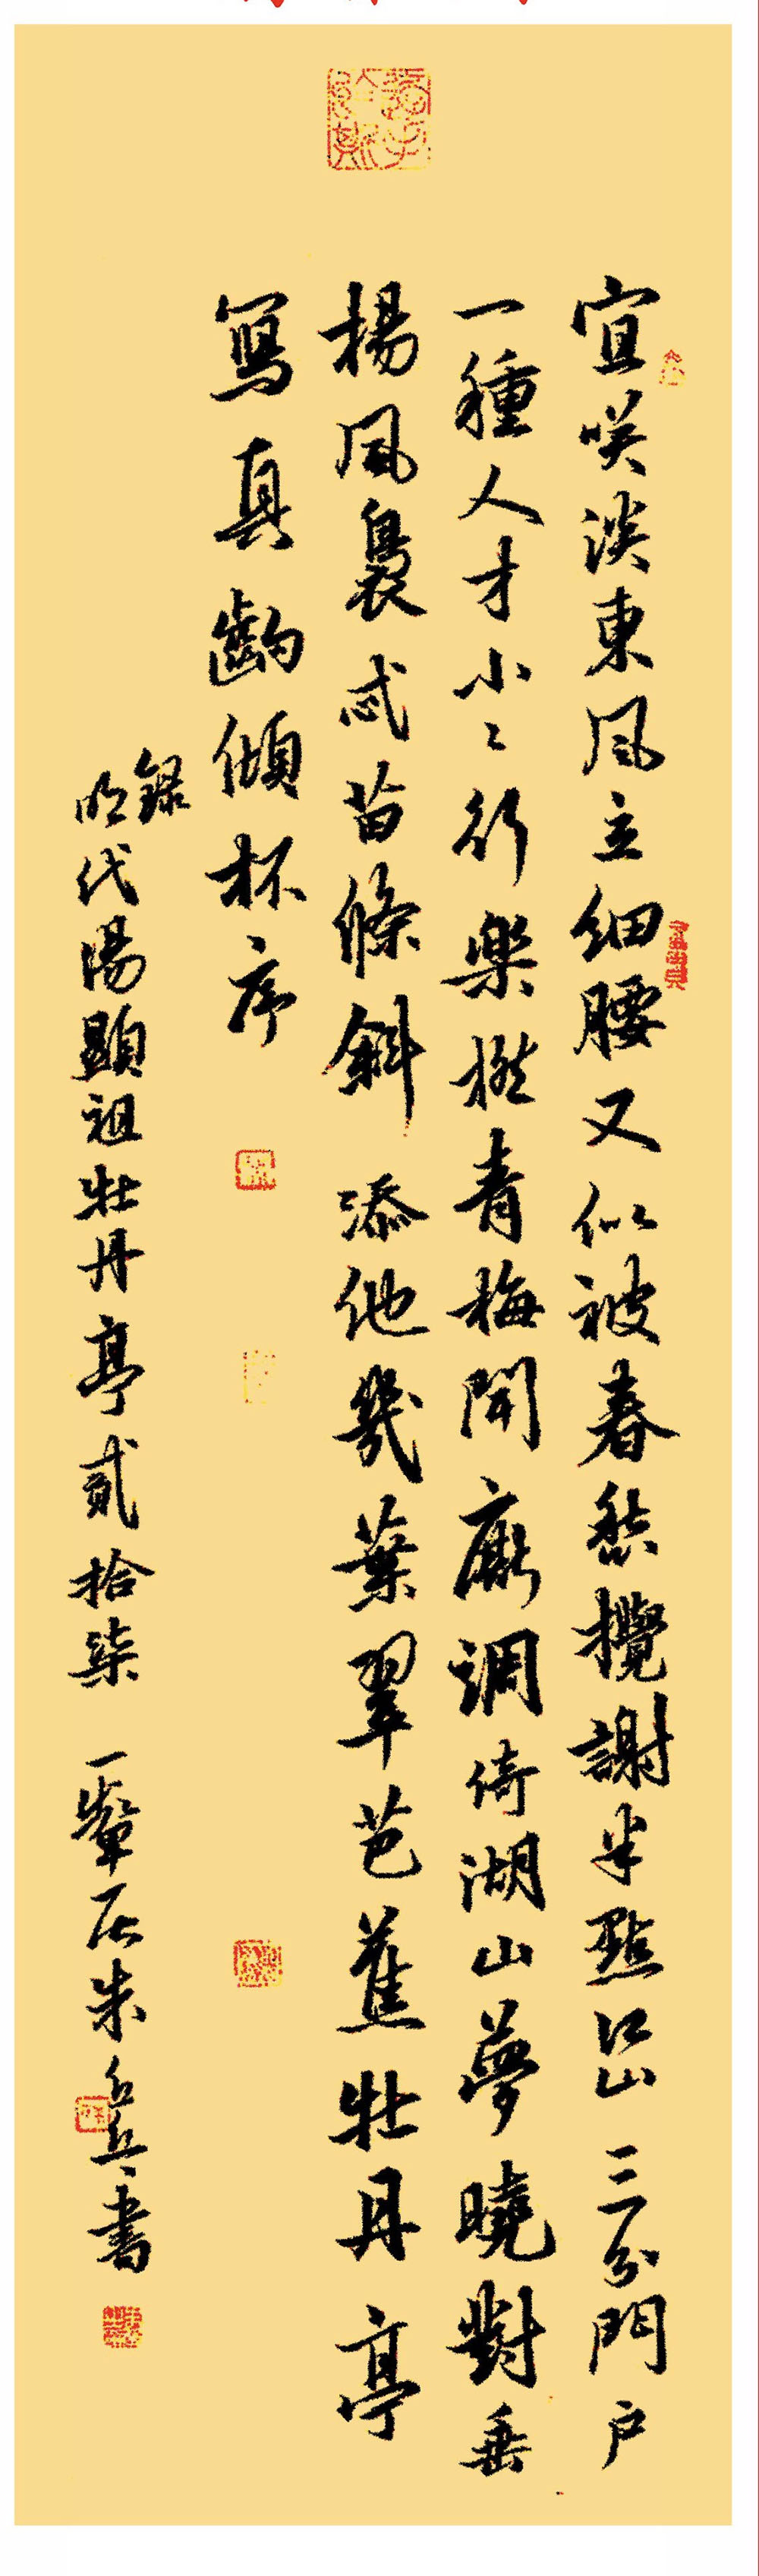 宜咲淡東風立細腰又似被春愁攪謝半點江山三分門戶
一種人才小〻行樂撚青梅閒廝調倚湖山夢曉對垂
楊風裊忒苗條斜添他幾葉翠芭蕉牡丹亭
寫真齣傾杯序
錄
明代湯顯祖牡丹亭貳拾柒 一輦居朱書